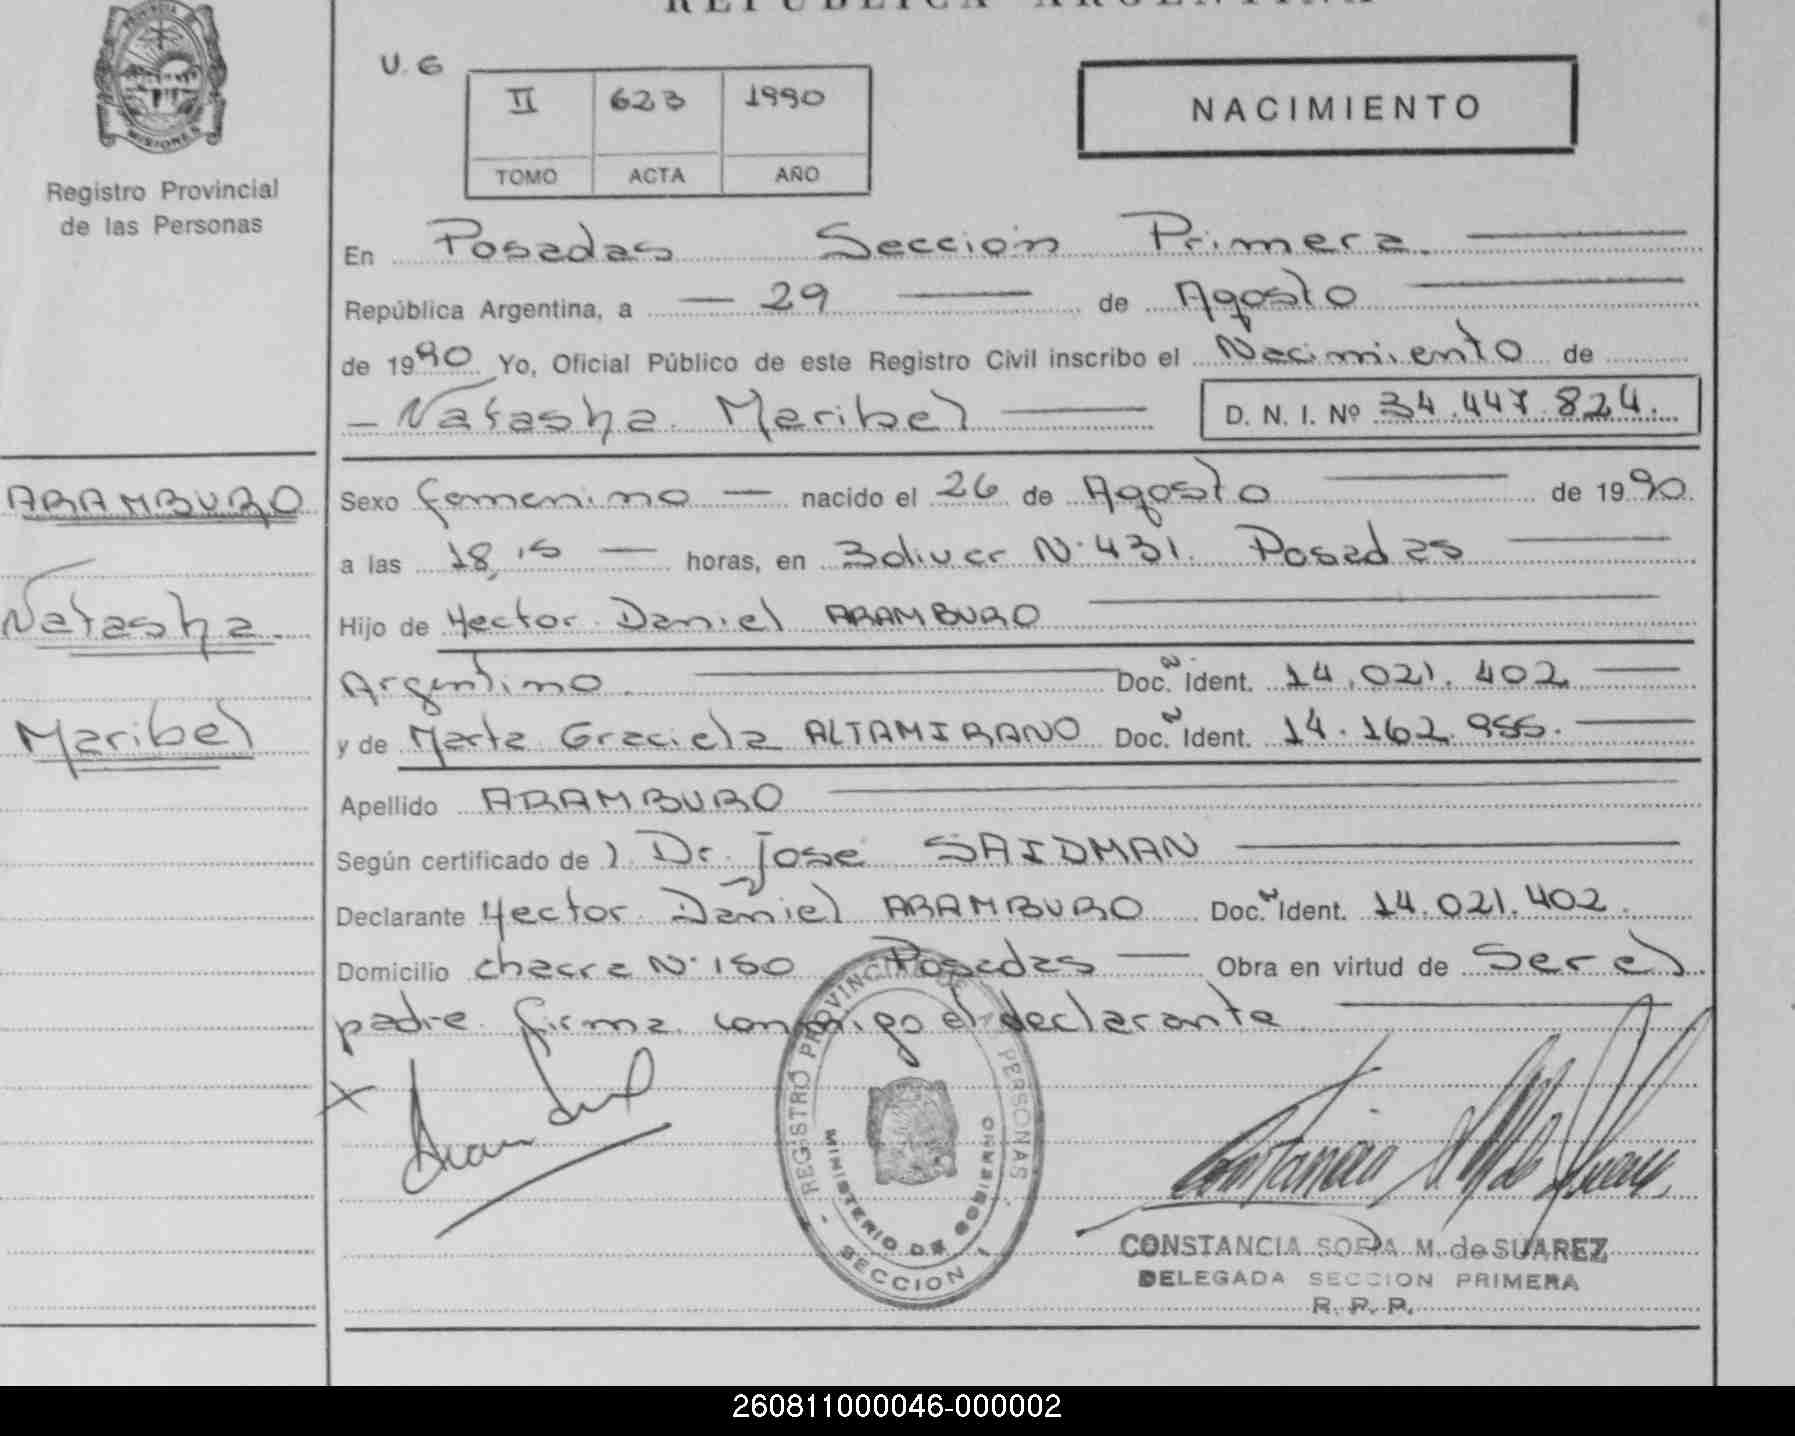 REPUBLICA ARGENTINA
PROVINCIA DE
MISIONES
Registro Provincial
de las Personas
U. 6
II 623 1990
TOMO ACTA AÑO
NACIMIENTO
En Posadas Sección Primera.
República Argentina, a 29 de Agosto
de 1990 Yo, Oficial Público de este Registro Civil inscribo el Nacimiento de
Natasha Maribel D. N. I. Nº 34.447.824.
ARAMBURO
Natasha
Maribel
Sexo femenino nacido el 26 de Agosto de 1990.
a las 18,15 horas, en Bolivar N. 431. Posadas
Hijo de Hector Daniel ARAMBURO
Argentino. Doc. Ident. 14.021.402
y de Marta Graciela ALTAMIRANO Doc. Ident. 14.162.955.
Apellido ARAMBURO
Según certificado de Dr. José SAIDMAN
Declarante Hector Daniel ARAMBURO Doc. Ident. 14.021.402.
Domicilio chacra N. 150 Posadas Obra en virtud de Ser el
padre. firma conmigo el declarante
REGISTRO PROVINCIAL DE PERSONAS
MINISTERIO DE GOBIERNO
SECCION 1
CONSTANCIA SOFIA M. de SUAREZ
DELEGADA SECCION PRIMERA
R. P. P.
260811000046-000002